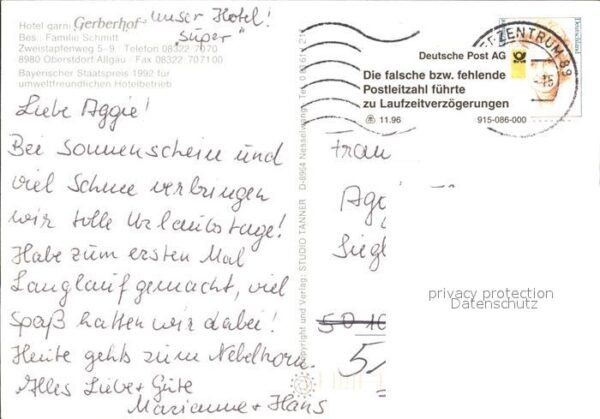 Hotel garni Gerberhof
Bes. Familie Schmitt
Zweistapfenweg 5-9. Telefon 08322 7070
8980 Oberstdorf Allgäu · Fax 08322 707100
Bayerischer Staatspreis 1992 für
umweltfreundlichen Hotelbetrieb
unser Hotel!
"Super"
Liebe Aggie!
Bei Sonnenschein und
viel Schnee verbringen
wir tolle Urlaubstage!
Habe zum ersten Mal
Langlauf gemacht, viel
Spaß hatten wir dabei!
Heute gehts zum Nebelhorn.
Alles Liebe + Gute
Marianne + Hans
Copyright und Verlag: STUDIO TANNER D-8964 Nesselwang
Deutsche Post AG
Die falsche bzw. fehlende
Postleitzahl führte
zu Laufzeitverzögerungen
11.96 915-086-000
Deutschland
ZENTRUM 89
Frau
Agg
Siegl
privacy protection
Datenschutz